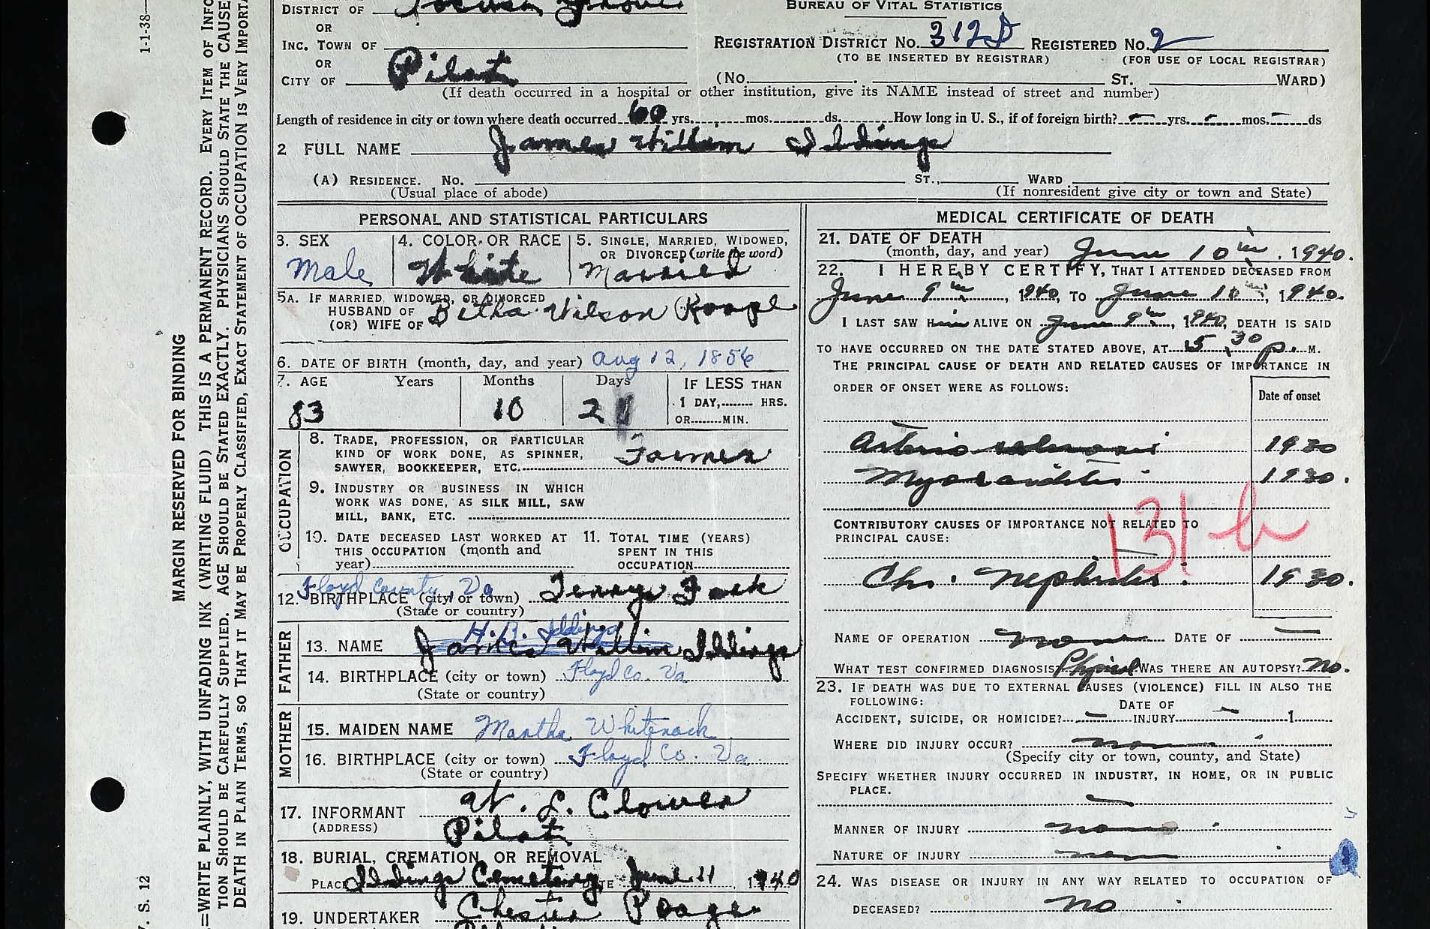 BUREAU OF VITAL STATISTICS
DISTRICT OF
OR
INC. TOWN OF
OR
CITY OF Pilot
REGISTRATION DISTRICT No. 312 REGISTERED No. 2
(TO BE INSERTED BY REGISTRAR) (FOR USE OF LOCAL REGISTRAR)
(No. ST. WARD)
(If death occurred in a hospital or other institution, give its NAME instead of street and number)
Length of residence in city or town where death occurred 60 yrs. mos. ds. How long in U. S., if of foreign birth? yrs. mos. ds
2 FULL NAME James William Iddings
(A) RESIDENCE. No. ST., WARD
(Usual place of abode) (If nonresident give city or town and State)
PERSONAL AND STATISTICAL PARTICULARS
3. SEX 4. COLOR OR RACE 5. SINGLE, MARRIED, WIDOWED,
OR DIVORCED (write the word)
Male White Married
5A. IF MARRIED, WIDOWED, OR DIVORCED
HUSBAND OF
(OR) WIFE OF Wilson
6. DATE OF BIRTH (month, day, and year) Aug 12, 1856
7. AGE Years Months Days IF LESS THAN
1 DAY, HRS.
OR MIN.
83 10
OCCUPATION
8. TRADE, PROFESSION, OR PARTICULAR
KIND OF WORK DONE, AS SPINNER,
SAWYER, BOOKKEEPER, ETC. Farmer
9. INDUSTRY OR BUSINESS IN WHICH
WORK WAS DONE, AS SILK MILL, SAW
MILL, BANK, ETC.
10. DATE DECEASED LAST WORKED AT
THIS OCCUPATION (month and
year)
11. TOTAL TIME (YEARS)
SPENT IN THIS
OCCUPATION
Floyd County, Va
12. BIRTHPLACE (city or town) Terrys Fork
(State or country)
FATHER
H. Iddings
13. NAME James William Iddings
14. BIRTHPLACE (city or town) Floyd Co. Va
(State or country)
MOTHER
15. MAIDEN NAME Martha Whitenack
16. BIRTHPLACE (city or town) Floyd Co. Va.
(State or country)
17. INFORMANT W. L. Clower
(ADDRESS) Pilot
18. BURIAL, CREMATION, OR REMOVAL
PLACE Iddings Cemetery DATE June 11 1940
19. UNDERTAKER Chester Poage
MEDICAL CERTIFICATE OF DEATH
21. DATE OF DEATH
(month, day, and year) June 10th, 1940.
22. I HEREBY CERTIFY, THAT I ATTENDED DECEASED FROM
June 9th, 1940, TO June 10th, 1940.
I LAST SAW Him ALIVE ON June 9th, 1940, DEATH IS SAID
TO HAVE OCCURRED ON THE DATE STATED ABOVE, AT 5 30 p. M.
THE PRINCIPAL CAUSE OF DEATH AND RELATED CAUSES OF IMPORTANCE IN
ORDER OF ONSET WERE AS FOLLOWS:
Date of onset
Arterio sclerosis 1930
Myocarditis 1930.
CONTRIBUTORY CAUSES OF IMPORTANCE NOT RELATED TO
PRINCIPAL CAUSE:
131 b
Chr. Nephritis. 1930.
NAME OF OPERATION none DATE OF
WHAT TEST CONFIRMED DIAGNOSIS? Physical WAS THERE AN AUTOPSY? no.
23. IF DEATH WAS DUE TO EXTERNAL CAUSES (VIOLENCE) FILL IN ALSO THE
FOLLOWING:
DATE OF
ACCIDENT, SUICIDE, OR HOMICIDE? INJURY 1
WHERE DID INJURY OCCUR? none
(Specify city or town, county, and State)
SPECIFY WHETHER INJURY OCCURRED IN INDUSTRY, IN HOME, OR IN PUBLIC
PLACE.
MANNER OF INJURY none
NATURE OF INJURY none
24. WAS DISEASE OR INJURY IN ANY WAY RELATED TO OCCUPATION OF
DECEASED? no
1-1-38
MARGIN RESERVED FOR BINDING
WRITE PLAINLY, WITH UNFADING INK (WRITING FLUID) THIS IS A PERMANENT RECORD. EVERY ITEM OF
TION SHOULD BE CAREFULLY SUPPLIED. AGE SHOULD BE STATED EXACTLY. PHYSICIANS SHOULD STATE THE CAUSE
DEATH IN PLAIN TERMS, SO THAT IT MAY BE PROPERLY CLASSIFIED, EXACT STATEMENT OF OCCUPATION IS VERY
S. 12